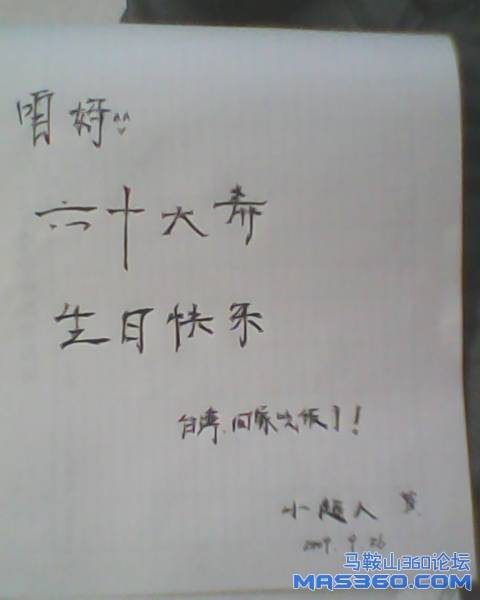 咱妈^^
六十大寿
生日快乐
台湾.回家吃饭了!
小超人
2009.9.26
马鞍山360论坛
MAS360.COM